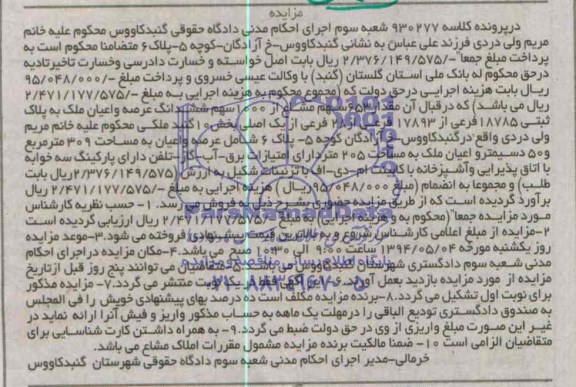 مزایده
درپرونده کلاسه ۹۳۰۲۷۷ شعبه سوم اجرای احکام مدنی دادگاه حقوقی گنبدکاووس محکوم علیه خانم
مریم ولی دردی فرزند علی عباس به نشانی گنبدکاووس-خ آزادگان-کوچه ۵-پلاک۶ متضامنا محکوم است به
پرداخت مبلغ جمعا" -/۲/۳۷۶/۱۴۹/۵۷۵ ریال بابت اصل خواسته و خسارت دادرسی وخسارت تاخیرتادیه
درحق محکوم له بانک ملی استان گلستان (گنبد) با وکالت عیسی خسروی و پرداخت مبلغ -/۹۵/۰۴۸/۰۰۰
ریال بابت هزینه اجرایی درحق دولت که (مجموع محکوم به هزینه اجرایی به مبلغ -/۲/۴۷۱/۱۷۷/۵۷۵
ریال می باشد) که درقبال آن مقدار ۶۵۳ سهم مشاع از ۱۰۰۰ سهم ششدانگ عرصه واعیان ملک به پلاک
ثبتی ۱۸۷۸۵ فرعی از ۱۷۸۹۳ فرعی از یک اصلی بخش ۱۰ گنبد ملکی محکوم علیه خانم مریم
ولی دردی واقع درگنبدکاووس-خ آزادگان کوچه ۵- پلاک ۶ شامل عرصه واعیان به مساحت ۳۰۹ مترمربع
و۵۰ دسیمترو اعیان ملک به مساحت ۲۰۵ متردارای امتیازت برق-آب-گاز-تلفن دارای پارکینگ سه خوابه
با اتاق پذیرایی وآشپزخانه با کابینت ام-دی-اف با تزئینات شکیل به ارزش (۲/۳۷۶/۱۴۹/۵۷۵ریال بابت
طلب) و مجموعا به انضمام (مبلغ ۹۵/۰۴۸/۰۰۰ ریال) هزینه اجرایی به مبلغ -/۲/۴۷۱/۱۷۷/۵۷۵ ریال
برآورد گردیده است که از طریق مزایده حضوری بشرح ذیل به فروش می رسد. ۱- حسب نظریه کارشناس
مورد مزایده جمعا" (محکوم به و هزینه اجرایی) به مبلغ -/۲/۴۷۱/۱۷۷/۵۷۵ ریال ارزیابی گردیده است
۲-مزایده از مبلغ اعلامی کارشناس شروع و به بالاترین قیمت پیشنهادی فروخته می شود.۳-موعد مزایده
روز یکشنبه مورخه ۱۳۹۴/۰۵/۰۴ ساعت ۹:۰۰ الی ۱۰:۳۰ صبح می باشد.۴-مکان مزایده دراجرای احکام
مدنی شعبه سوم دادگستری شهرستان گنبدکاووس می باشد.۵-متقاضیان می توانند پنج روز قبل ازتاریخ
مزایده از مورد مزایده بازدید بعمل آورند.۶-این آگهی فقط در یک نوبت منتشر می گردد.۷-مزایده مذکور
برای نوبت اول تشکیل می گردد.۸-برنده مزایده مکلف است ده درصد بهای پیشنهادی خویش را فی المجلس
به صندوق دادگستری تودیع الباقی را درمهلت یک ماهه به حساب مذکور واریز و فیش آنرا ارائه نماید در
غیر این صورت مبلغ واریزی از وی در حق دولت ضبط می گردد.۹- به همراه داشتن کارت شناسایی برای
متقاضیان الزامی است ۱۰- ضمنا مالکیت برنده مزایده مشمول مقررات املاک مشاع می باشد.
خرمالی-مدیر اجرای احکام مدنی شعبه سوم دادگاه حقوقی شهرستان گنبدکاووس